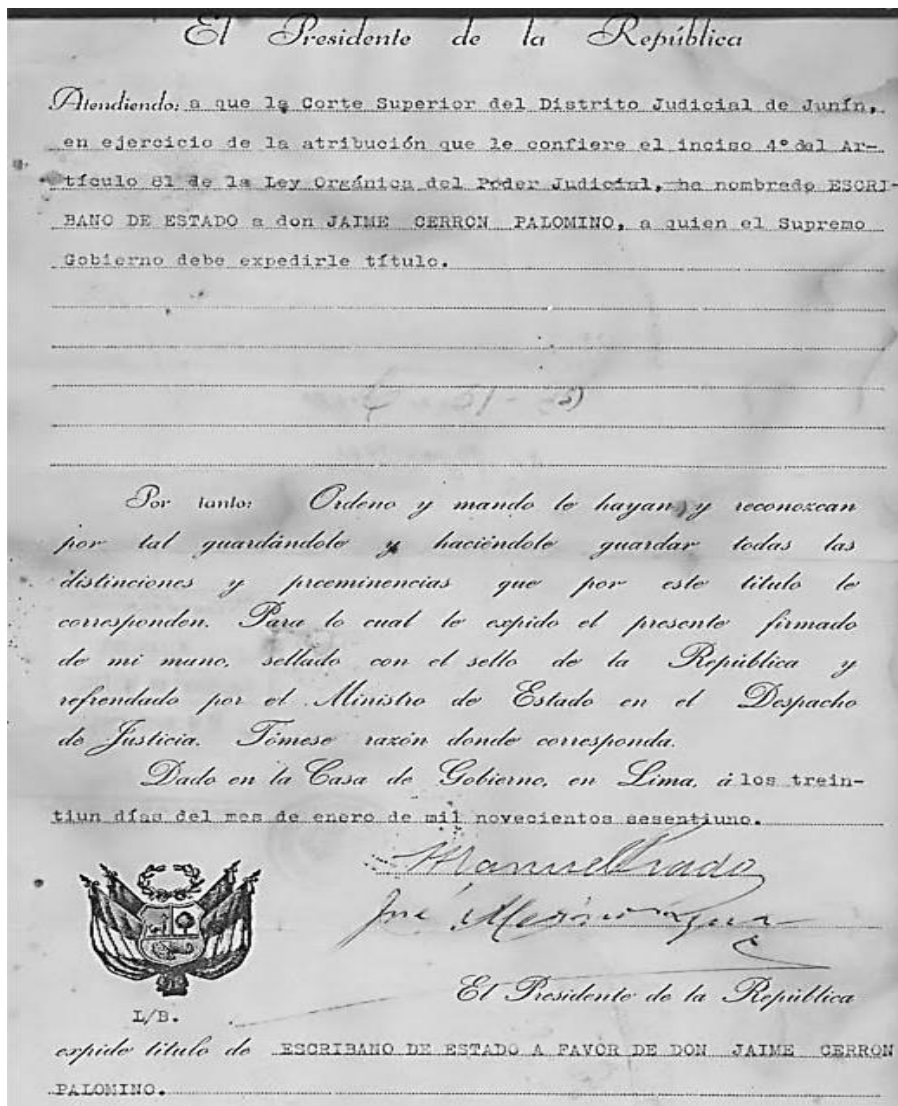 El Presidente de la República
Atendiendo: a que la Corte Superior del Distrito Judicial de Junín,
en ejercicio de la atribución que le confiere el inciso 4° del Ar-
tículo 81 de la Ley Orgánica del Poder Judicial, ha nombrado ESCRI-
BANO DE ESTADO a don JAIME CERRON PALOMINO, a quien el Supremo
Gobierno debe expedirle título.
Por tanto: Ordeno y mando le hayan y reconozcan
por tal guardándole y haciéndole guardar todas las
distinciones y preeminencias que por este título le
corresponden. Para lo cual le expido el presente firmado
de mi mano, sellado con el sello de la República y
refrendado por el Ministro de Estado en el Despacho
de Justicia. Tómese razón donde corresponda.
Dado en la Casa de Gobierno, en Lima, á los trein-
tiun días del mes de enero de mil novecientos sesentiuno.
Manuel Prado
José
El Presidente de la República
L/B.
expide título de ESCRIBANO DE ESTADO A FAVOR DE DON JAIME CERRON
PALOMINO.